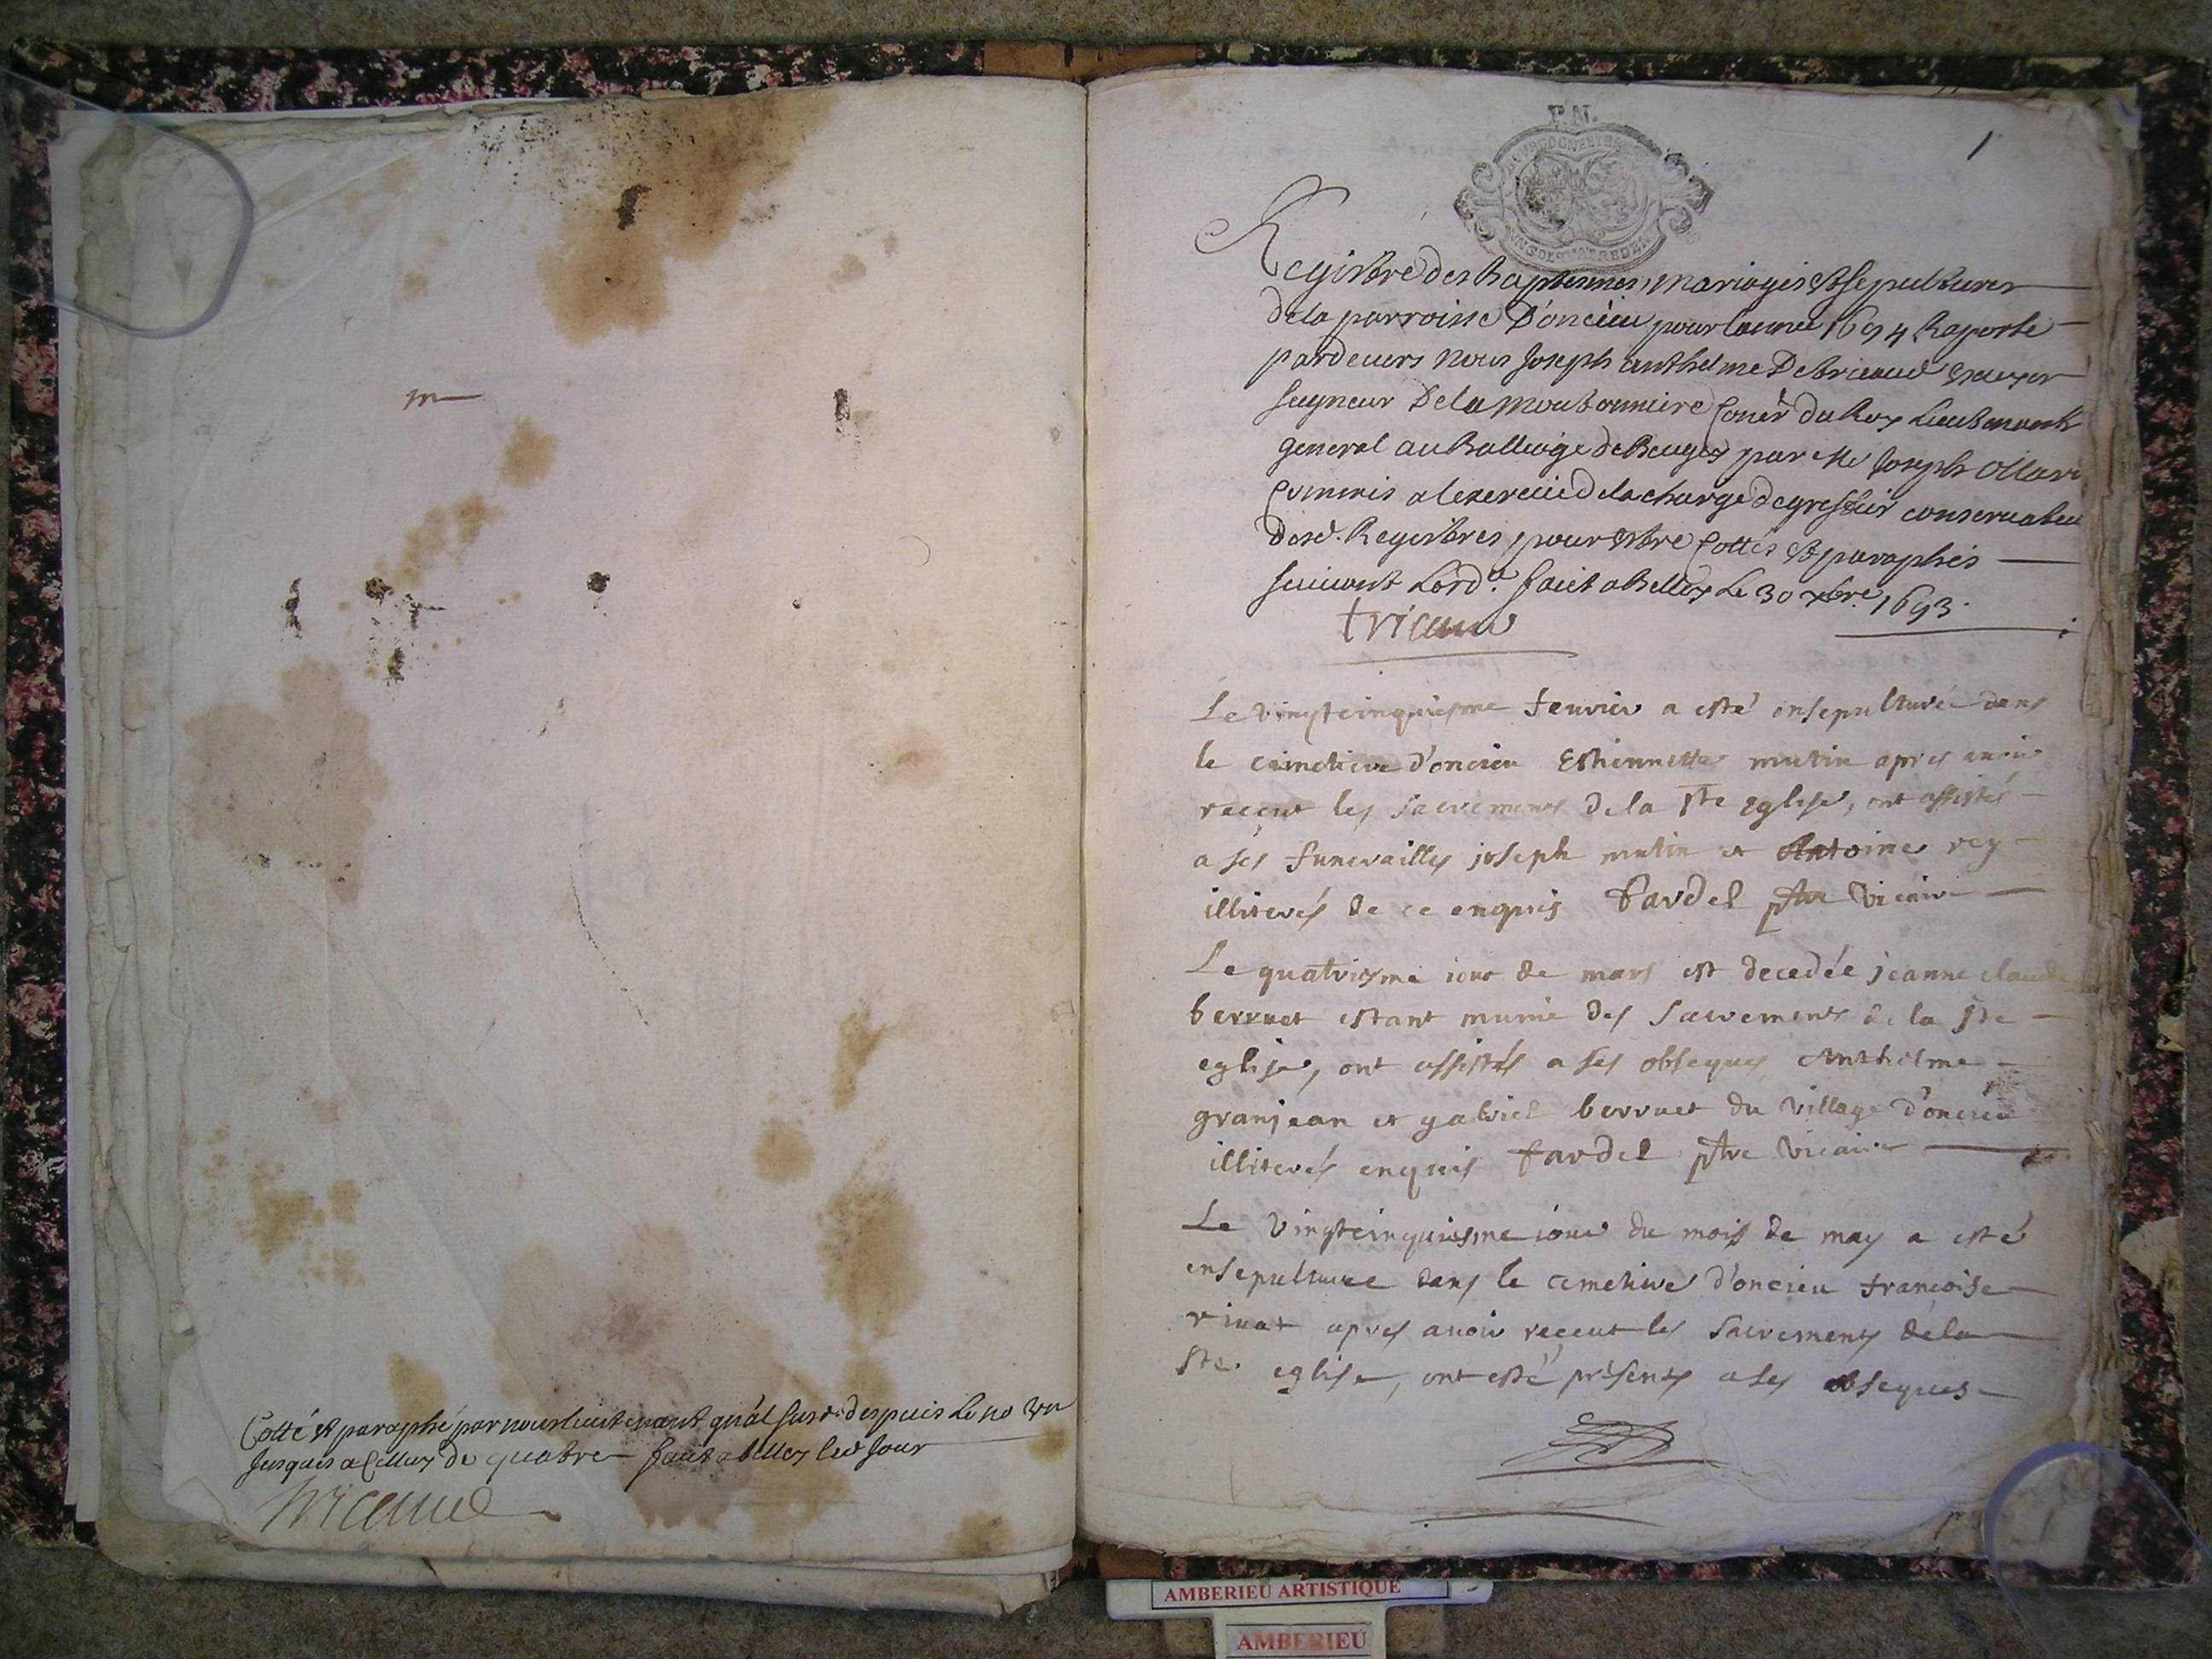 m
Cotté et paraphé par nous lieutenant gnãl susd. despuis le no un
jusques a celluy de quatre fait a belley led jour
tricaud
P.N.
1
Registre des Baptesmes, mariages et sepultures
de la parroisse D'oncieu pour lannee 1694 Raporté
pardevers nous Joseph anthelme De tricaud Escuyer
seigneur De la moutonniere Coner du Roy Lieutenant
general au Balliage de Beugey par Me Joseph
Commis a lexercice de la charge de greffier conservateu
desd. Registres, pour estre Cottés et paraphés
suivant Lord.ce fait a Belley Le 30 xbre 1693.
tricaud
Le vingtcinquiesme feuvrier a esté ensepulturée dans
le cimetiere d'oncieu Estiennette mutin apres avoir
receut les sacrements de la ste Eglise, ont assistés
a ses funerailles joseph mutin et Antoine rey
illiterés de ce enquis fardel ptre vicaire
Le quatriesme iour de mars est decedée jeanne claude
berruet estant munie des sacrements de la ste
eglise, ont assistés a ses obseques Anthelme
granjean et gabriel berruet du village d'oncieu
illiterés enquis fardel ptre vicaire
Le vingtcinquiesme iour du mois de may a esté
ensepulturee dans le cemetiere d'oncieu françoise
vinat apres avoir receut les sacrements de la
ste eglise, ont esté présents a ses obseques
AMBERIEU ARTISTIQUE
AMBERIEU